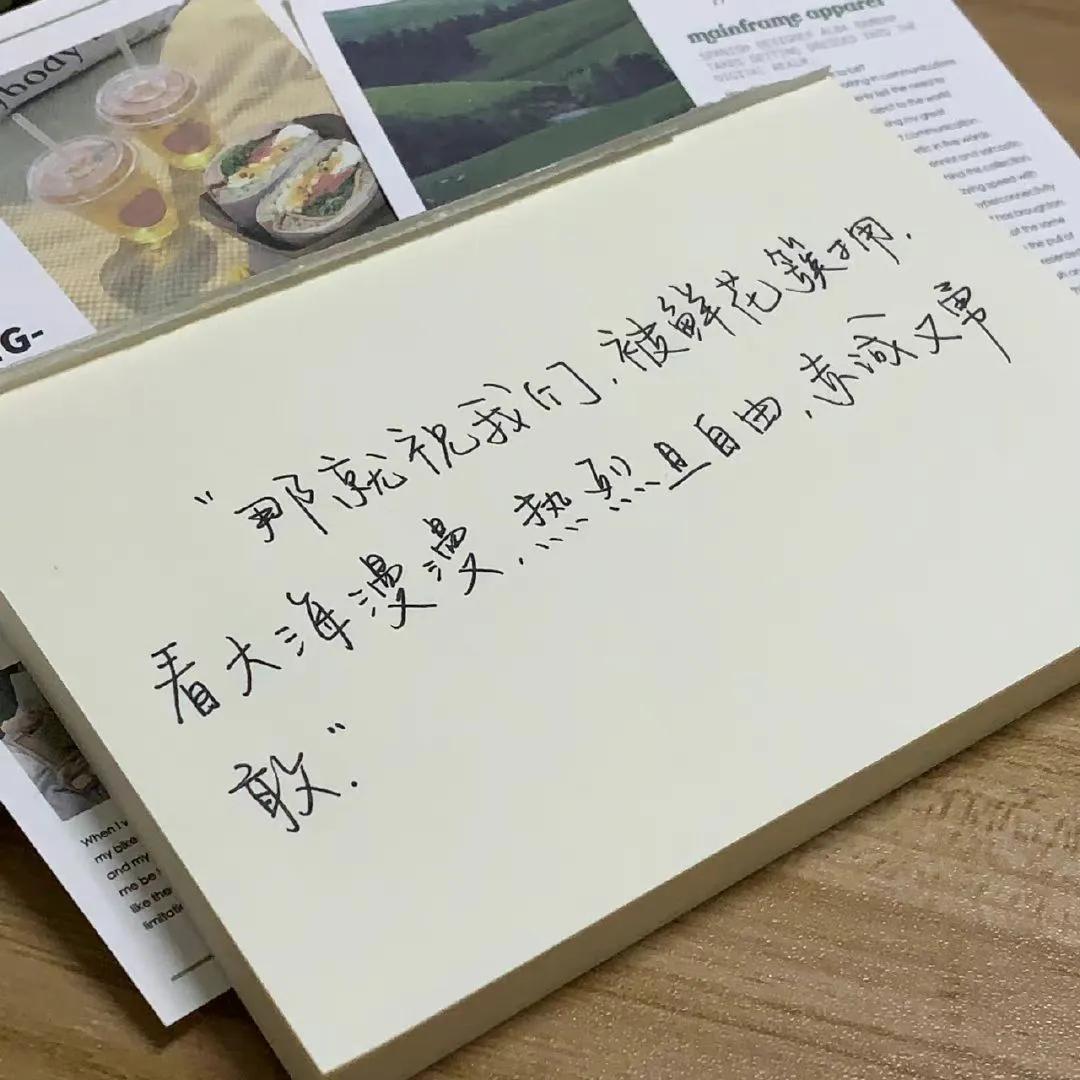 body
mainframe apparel
DIGITAL REALM
G-
“那就祝我们.被鲜花簇拥.
看大海漫漫.热烈且自由.赤诚又勇
敢.”
my bike
and my
me be
like the